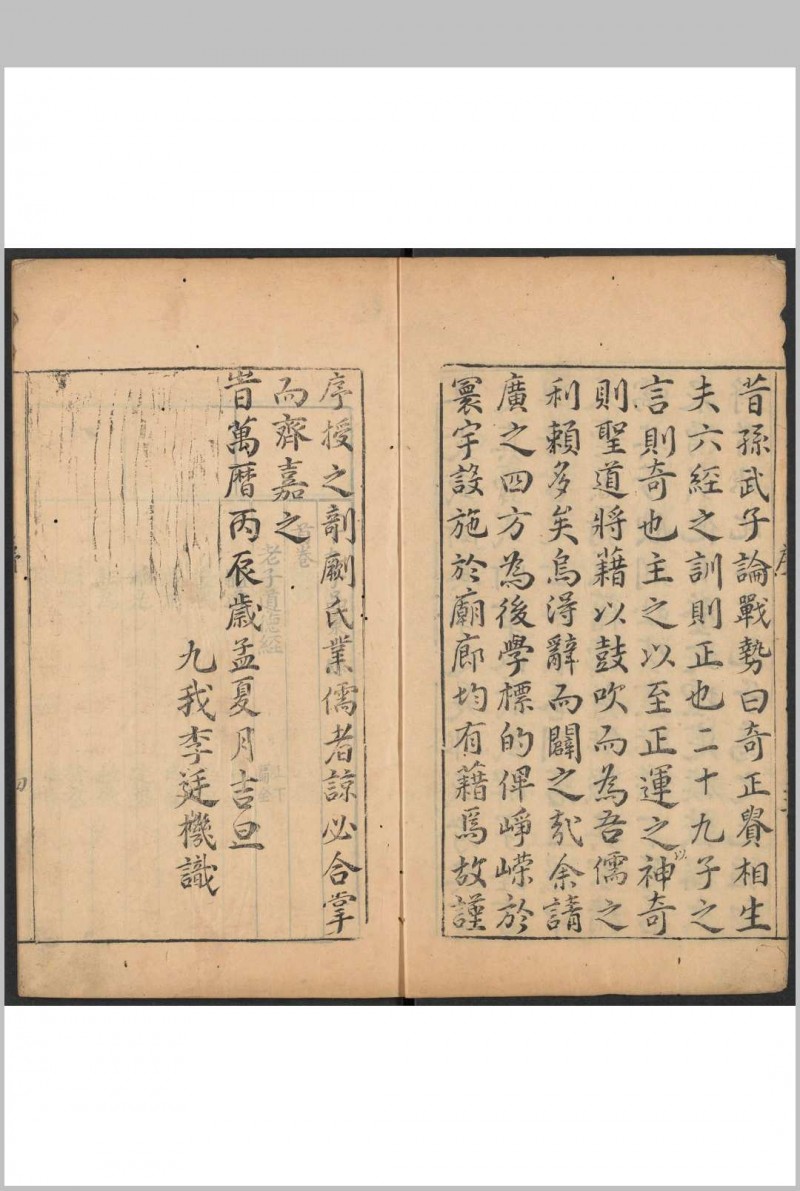 昔孫武子論戰勢曰奇正賁相生
夫六經之訓則正也二十九子之
言則奇也主之以至正運之以神奇
則聖道將藉以鼓吹而為吾儒之
利賴多矣烏得辭而闢之哉余請
廣之四方為後學標的俾崢嶸於
寰宇設施於廟廊均有藉焉故謹
序授之剞劂氏業儒者諒必合掌
而齊嘉之
旹萬曆丙辰歲孟夏月吉旦
九我李廷機識
序
首卷
老子道德經